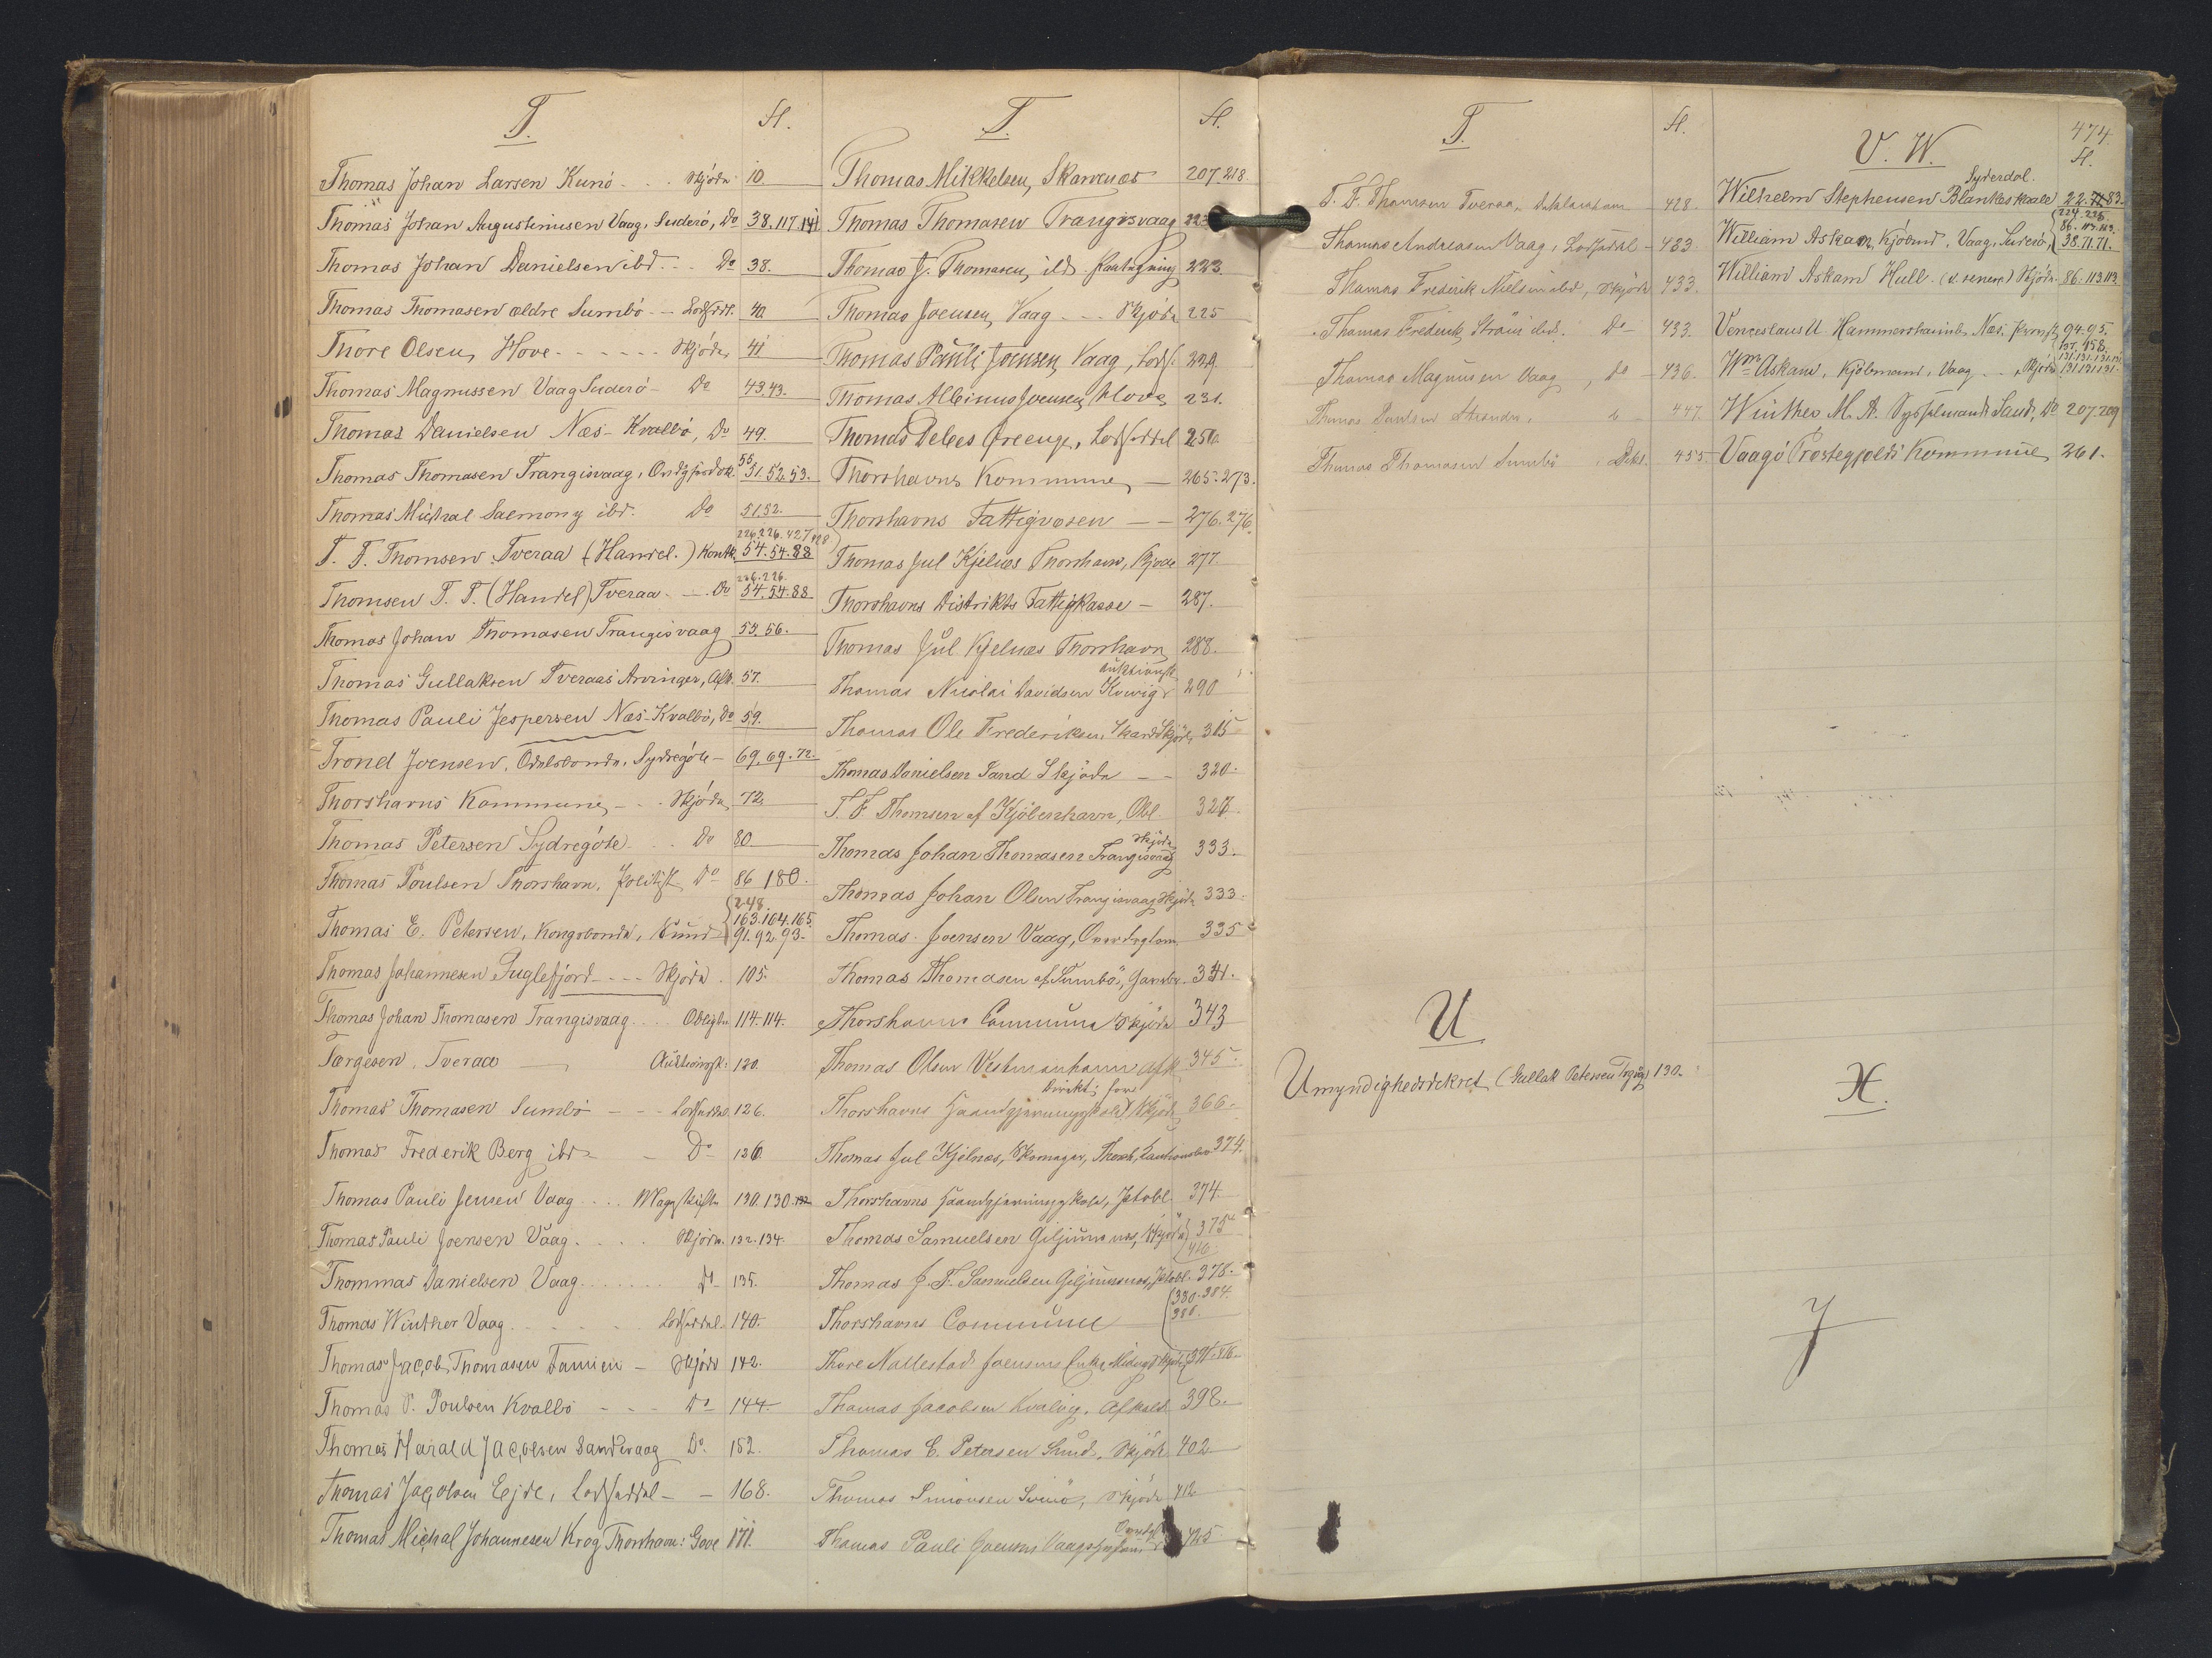 T. fl.
Thomas Johan Larsen Kunö . . . Skjöde 10.
Thomas Johan Augustinusen Vaag, Suderö, Do 38.117.141
Thomas Johan Danielsen ibd . . . Do 38.
Thomas Thomasen ældre Sumbö - - Lodseddl. 40.
Thore Olsen, Hove - - - - - - Skjöde 41
Thomas Magnussen Vaag Suderö - Do 43.43.
Thomas Danielsen Næs - Kvalbö, Do 49.
55
Thomas Thomasen Trangisvaag, 51.52.53.
Thomas Michal Salmony ibd. Do 51.52.
226.226.427.428
T. F. Thomsen Tveraa (Handel.) Kontk. 54.54.88
226.226.
Thomsen T. F. (Handel) Tveraa - - Do 54.54.88
Thomas Johan Thomasen Trangisvaag 53.56.
Thomas Gullaksen Tveraas Arvinger, Afk. 57.
Thomas Pauli Jespersen Næs-Kvalbö, Do 59.
Trond Joensen, Odelsbonde, Sydregöte - 69.69.72.
Thorshavns Kommune - - Skjöde 72.
Thomas Petersen Sydregöte . . Do 80
Thomas Poulsen Thorshavn, Politist, Do 86 180.
248.
163.164.165.
Thomas E. Petersen, Kongsbonde, Sund 91.92.93.
Thomas Johannesen Fuglefjord - - - Skjöde . 105.
Thomas Johan Thomasen Trangisvaag . . . Obligtn 114.114.
Tærgesen, Tveraa - Auktionsk: 120.
Thomas Thomasen Sumbö - - Lodseddel 126.
Thomas Frederik Berg ibd - - Do 126.
Thomas Pauli Jensen Vaag . . . Mageskifte 130.130.132
Thomas Pauli Joensen Vaag . . . . Skjöde. 132.134.
Thommas Danielsen Vaag . . . . . . Do 135.
Thomas Winther Vaag . . . . . . Lodseddel. 140.
Thomas Jacob Thomasen Famien - Skjöde 142.
Thomas P. Poulsen Kvalbö - - - Do 144.
Thomas Harald Jacobsen Sandevaag Do. 152.
Thomas Jacobsen Ejde, Lodseddel - - 168.
Thomas Michal Johannesen Krog Thorshavn: Gave 171.
T. fl.
Thomas Mikkelsen, Skarvenæs 207 218.
Thomas Thomasen Trangisvaag 223
Thomas J. Thomasen, ibd. Fratagning 223.
Thomas Joensen, Vaag - - - Skjöde 225
Thomas Pauli Joensen Vaag, Lods. 229.
Thomas Albinus Joensen Hove 231.
Thomas Lodseddel 256.
Thorshavns Kommune, - 265.273.
Thorshavns Fattigvæsen - - 276.276.
Thomas Jul Kjelnæs Thorshavn, Skjöde 277.
Thorshavns Distrikts Fattigkasse - 287.
Thomas Jul Kjelnæs Thorshavn 288.
Auktionsk.
Thomas Nicolai Davidsen Kvivig 290
Thomas Ole Frederiksen, Skard Skjöde 315
Thomas Danielsen Sand Skjöde - - 320.
T. F. Thomsen af Kjöbenhavn, Obl. 327.
Skjöde
Thomas Johan Thomasen Trangisvaag 333.
Thomas Johan Olsen Trangisvaag Skjöde 333.
Thomas Joensen Vaag, 335
Thomas Thomasen af Sumbö, Gavebr. 341.
Thorshavns Commune Skjöde 343
Thomas Olsen Vestmanhavn Afk. 345.
Thorshavns Haandgjerningsskole Skjöde 366.
Thomas Jul Kjelnæs, Skomager, Thorsh, 374.
Thorshavns Haandgjerningsskole, Pstobl. 374.
Thomas Samuelsen Giljumnæs, Skjöde 375
416
Thomas J. F. Samuelsen Giljumnæs, Pstobl. 378.
380.384.
Thorshavns Commune 388.
Thore Nallestad Joensens Enke, Skjöde 391.
Thomas Jacobsen Kvalvig, Afkald. 398.
Thomas E. Petersen Sund, Skjöde 402
Thomas Simonsen Svinö, Skjöde 412
Thomas Pauli Joensen 425.
T. fl.
T. F. Thomsen Tveraa, Deklaration - 428.
Thomas Andreasen Vaag, Lodseddel - 433.
Thomas Frederik Nielsen ibd, Skjöde 433.
Thomas Frederik Ström ibd. Do - 433.
Thomas Magnusen Vaag, do - 436.
Thomas Poulsen 447.
Thomas Thomasen Sumbö . Dekl. 455.
U
Umyndighedsdekret (Gullak Petersen 130.
474
V. W. fl.
Syderdal.
Wilhelm Stephensen Blankeskaale 22.74.83.
224.226.
86.113.113.
William Askam, Kjöbmd., Vaag, Suderö, 38.71.71.
William Askam Hull. (d. senere) Skjöde. 86.113.113.
Venceslaus U. Hammershaimb, Næs. 94.95.
157.158.
131.131.131.131
Wm Askam, Kjöbmand, Vaag - - Skjöde 131.131.131.
Winther M. A. Sysselmand Sand, Do 207.209
Vaagö Præstegjelds Kommune 261.
X.
Y